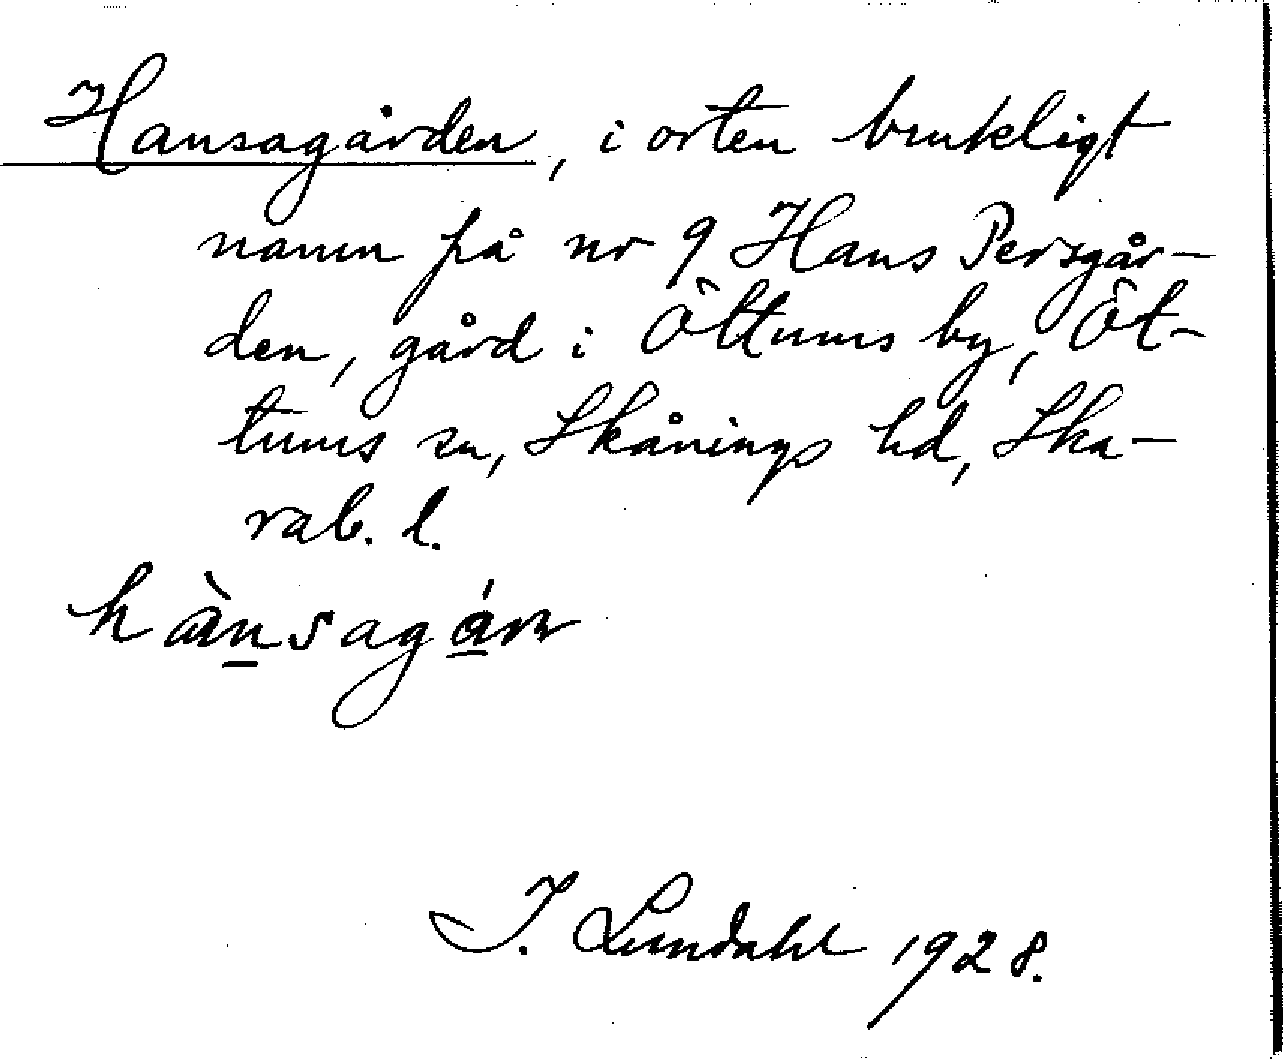 Hansagården, i orten brukligt
namn på nr 9 Hans Persgår-
den, gård i Öttums by, Öt-
tums sn, Skånings hd, Ska-
rab. l.
hànsagáṙn
I. Lundahl 1928.